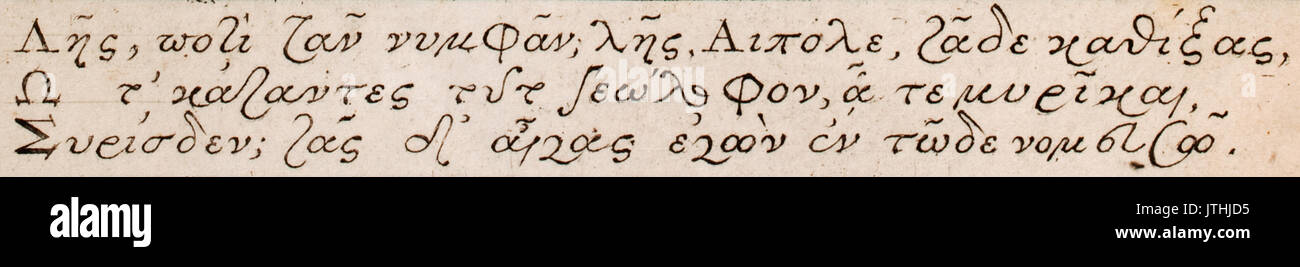 Λῆς, ποτὶ τᾶν νυμφᾶν; λῆς, Αιπολε, τᾶδε καθίξας,
Ω τ' κάταντες τȣτ γεώλοφον, ᾶ τε μυρῖκαι,
Συρίσδεν; τᾶς δ' αἶγας ἐγὼν ἐν τῶδε νομευσῶ.
alamy
alamy
Image ID: JTHJD5
www.alamy.com